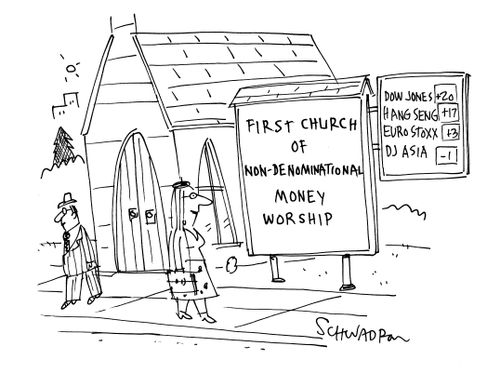 FIRST CHURCH
OF
NON-DENOMINATIONAL
MONEY
WORSHIP
DOW JONES +20
HANG SENG +17
EURO STOXX +3
DJ ASIA -1
SCHWADRON